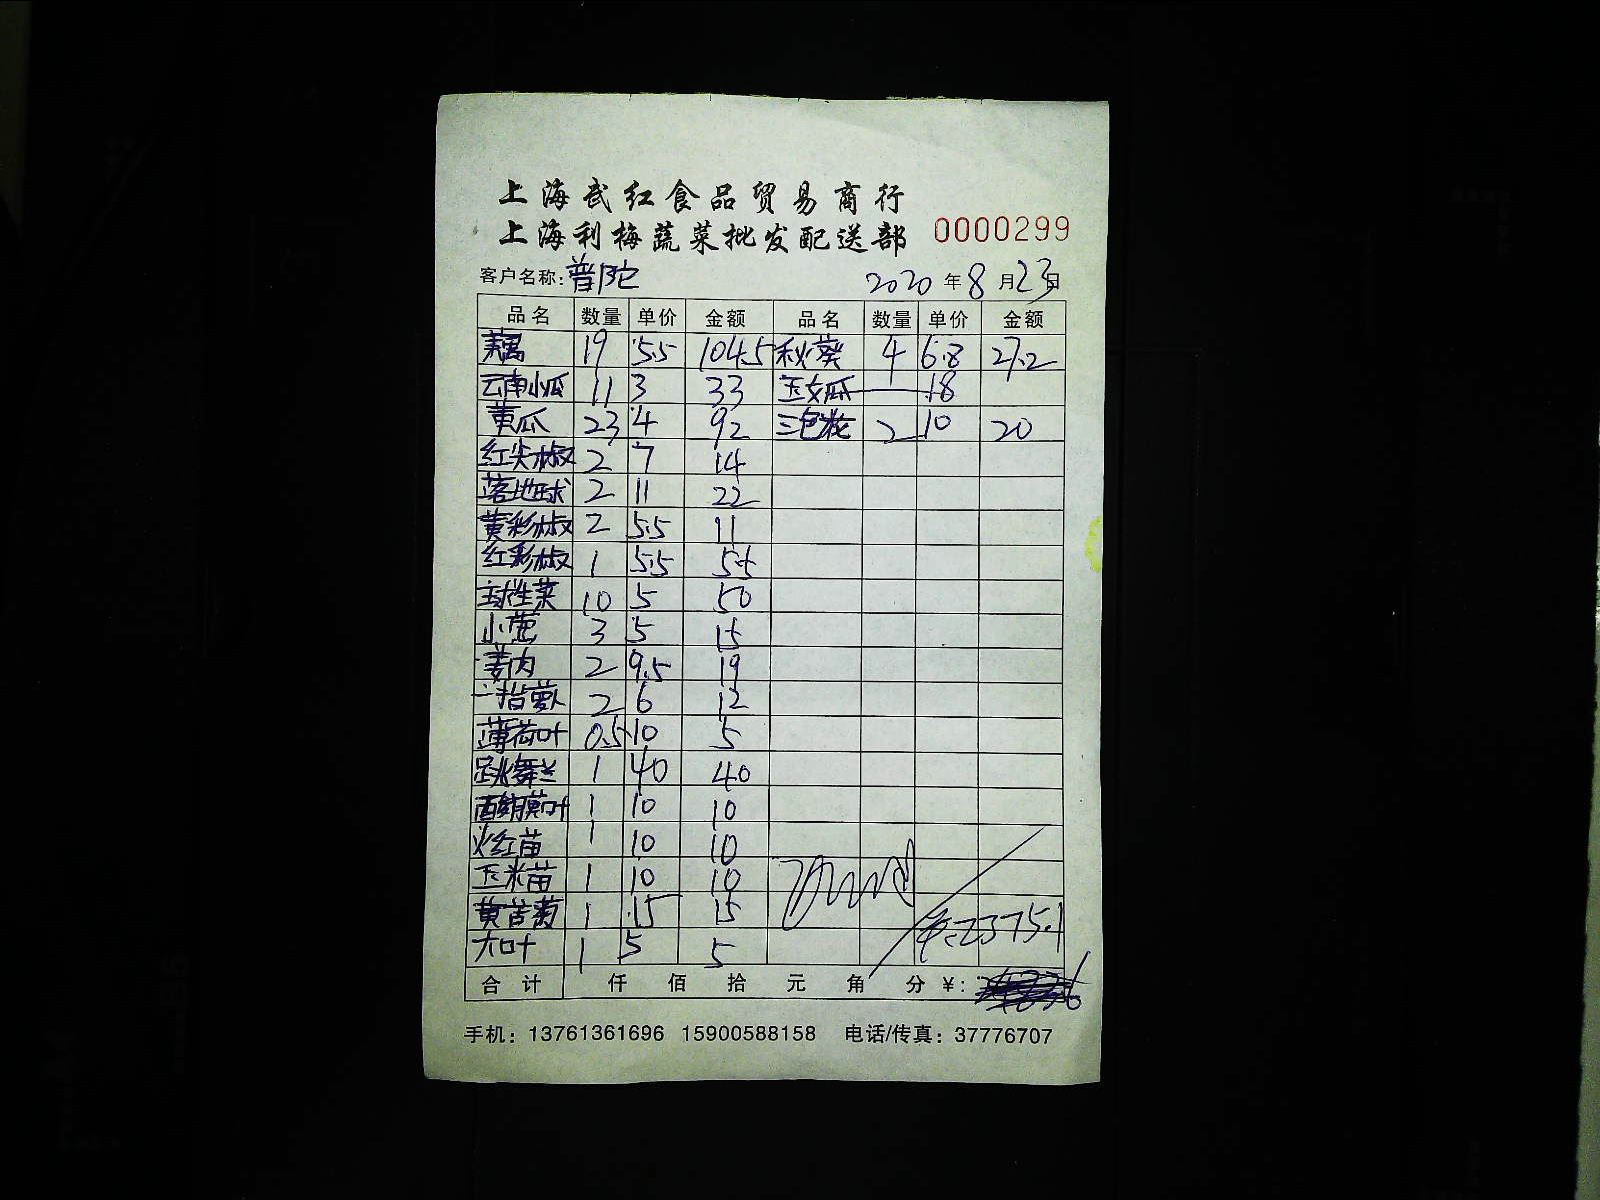 上海武红食品贸易商行
上海利梅蔬菜批发配送部 0000299
客户名称：普陀 2020年8月23日
品名 数量 单价 金额 品名 数量 单价 金额
藕 19 5.5 104.5 秋葵 4 6.8 27.2
云南小瓜 11 3 33 玉女瓜 18
黄瓜 23 4 92 三色堇 2 10 20
红尖椒 2 7 14
落地球 2 11 22
黄彩椒 2 5.5 11
红彩椒 1 5.5 5.5
球生菜 10 5 50
小葱 3 5 15
姜肉 2 9.5 19
手指萝卜 2 6 12
薄荷叶 0.5 10 5
跳舞兰 1 40 40
酸模叶 1 10 10
火红苗 1 10 10
玉米苗 1 10 10
黄苦菊 1 15 15
大叶 1 5 5
合计 仟 佰 拾 元 角 分 ¥：
手机：13761361696 15900588158 电话/传真：37776707